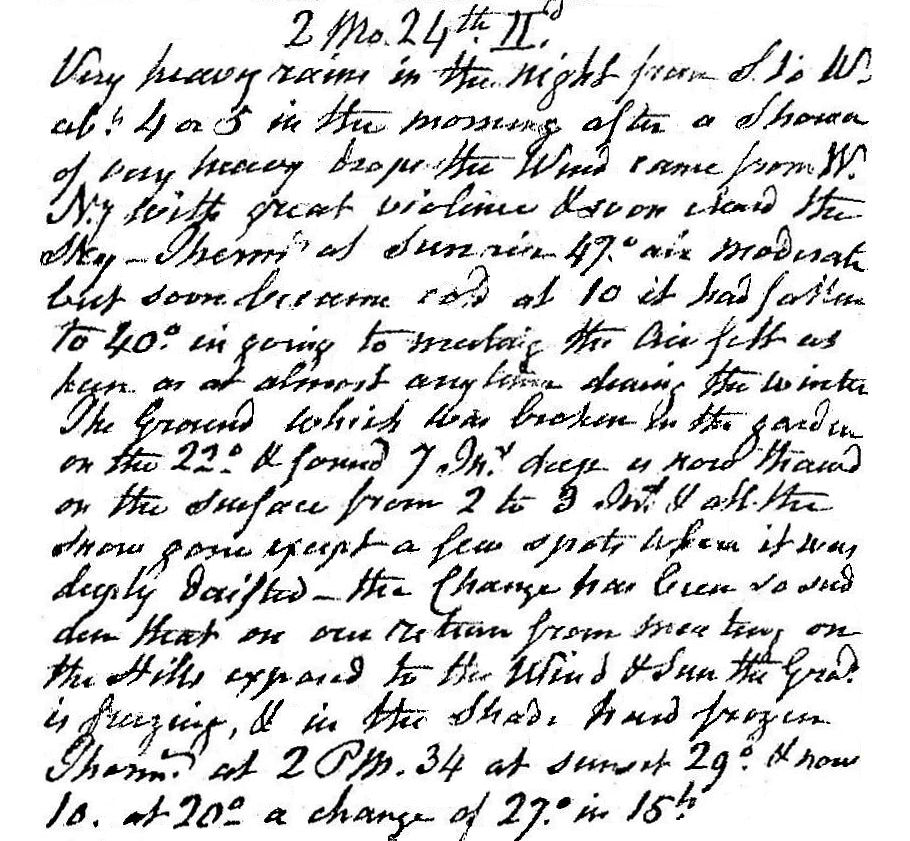 2 Mo. 24th II.d
Very heavy rains in the night from S. to W.
abt. 4 or 5 in the morning after a Shower
of very heavy drops the Wind came from W.
N.y with great violence & soon cleard the
Sky – Thermr at Sunrise 47.° air moderate
but soon became cold at 10 it had fallen
to 40.° in going to meeting the Air felt as
keen as at almost any time during the winter
The Ground which was broken in the garden
on the 22.d & found 7 Ins. deep is now thawd
on the Surface from 2 to 3 Ins. & all the
snow gone except a few spots where it was
deeply drifted – the Change has been so sud
den that on our return from meeting on
the Hills exposed to the Wind & Sun the Grod.
is freezing, & in the Shade hard frozen
Thermr. at 2 PM. 34 at sunset 29.° & now
10. at 20° a change of 27.° in 15h.